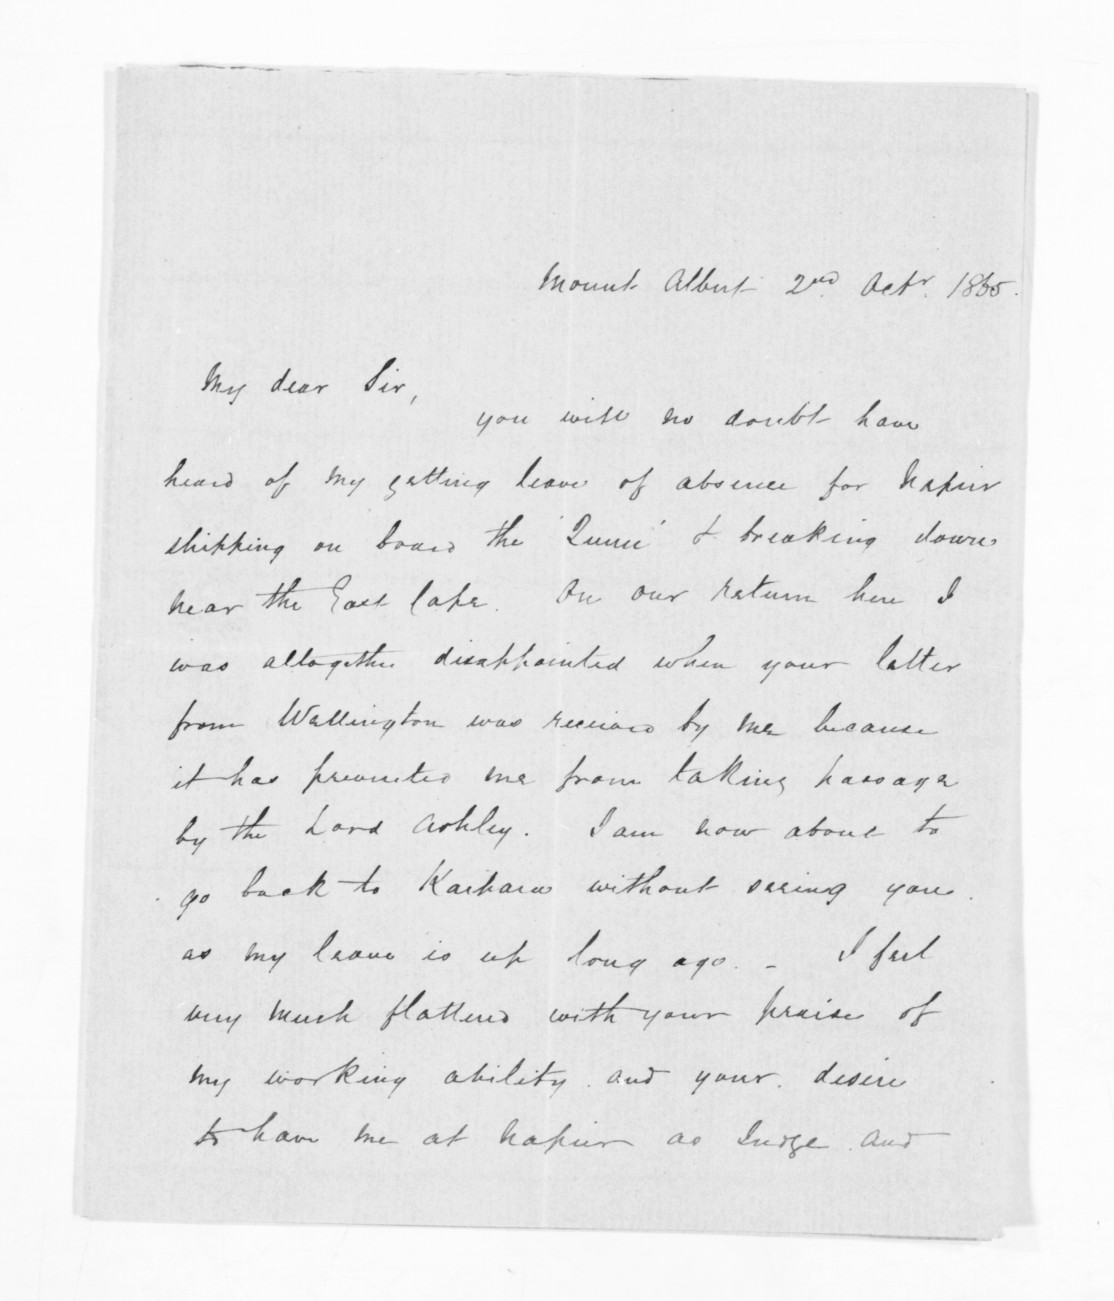 Mount Albert 2nd Octr. 1865.
My dear Sir,
you will no doubt have
heard of my getting leave of absence for Napier
shipping on board the 'Queen' & breaking down
near the East Cape. On our return here I
was altogether disappointed when your letter
from Wellington was received by me because
it has prevented me from taking passage
by the Lord Ashley. I am now about to
go back to Kaipara without seeing you.
as my leave is up long ago. - I feel
very much flattered with your praise of
my working ability. and your. desire
to have me at Napier as Judge. and